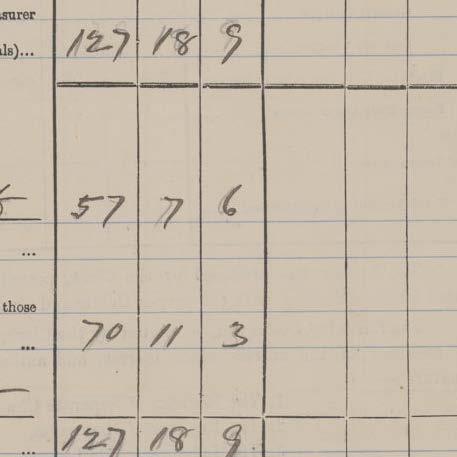 asurer
als)... 127 18 9
57 7 6
...
those
... 70 11 3
... 127 18 9